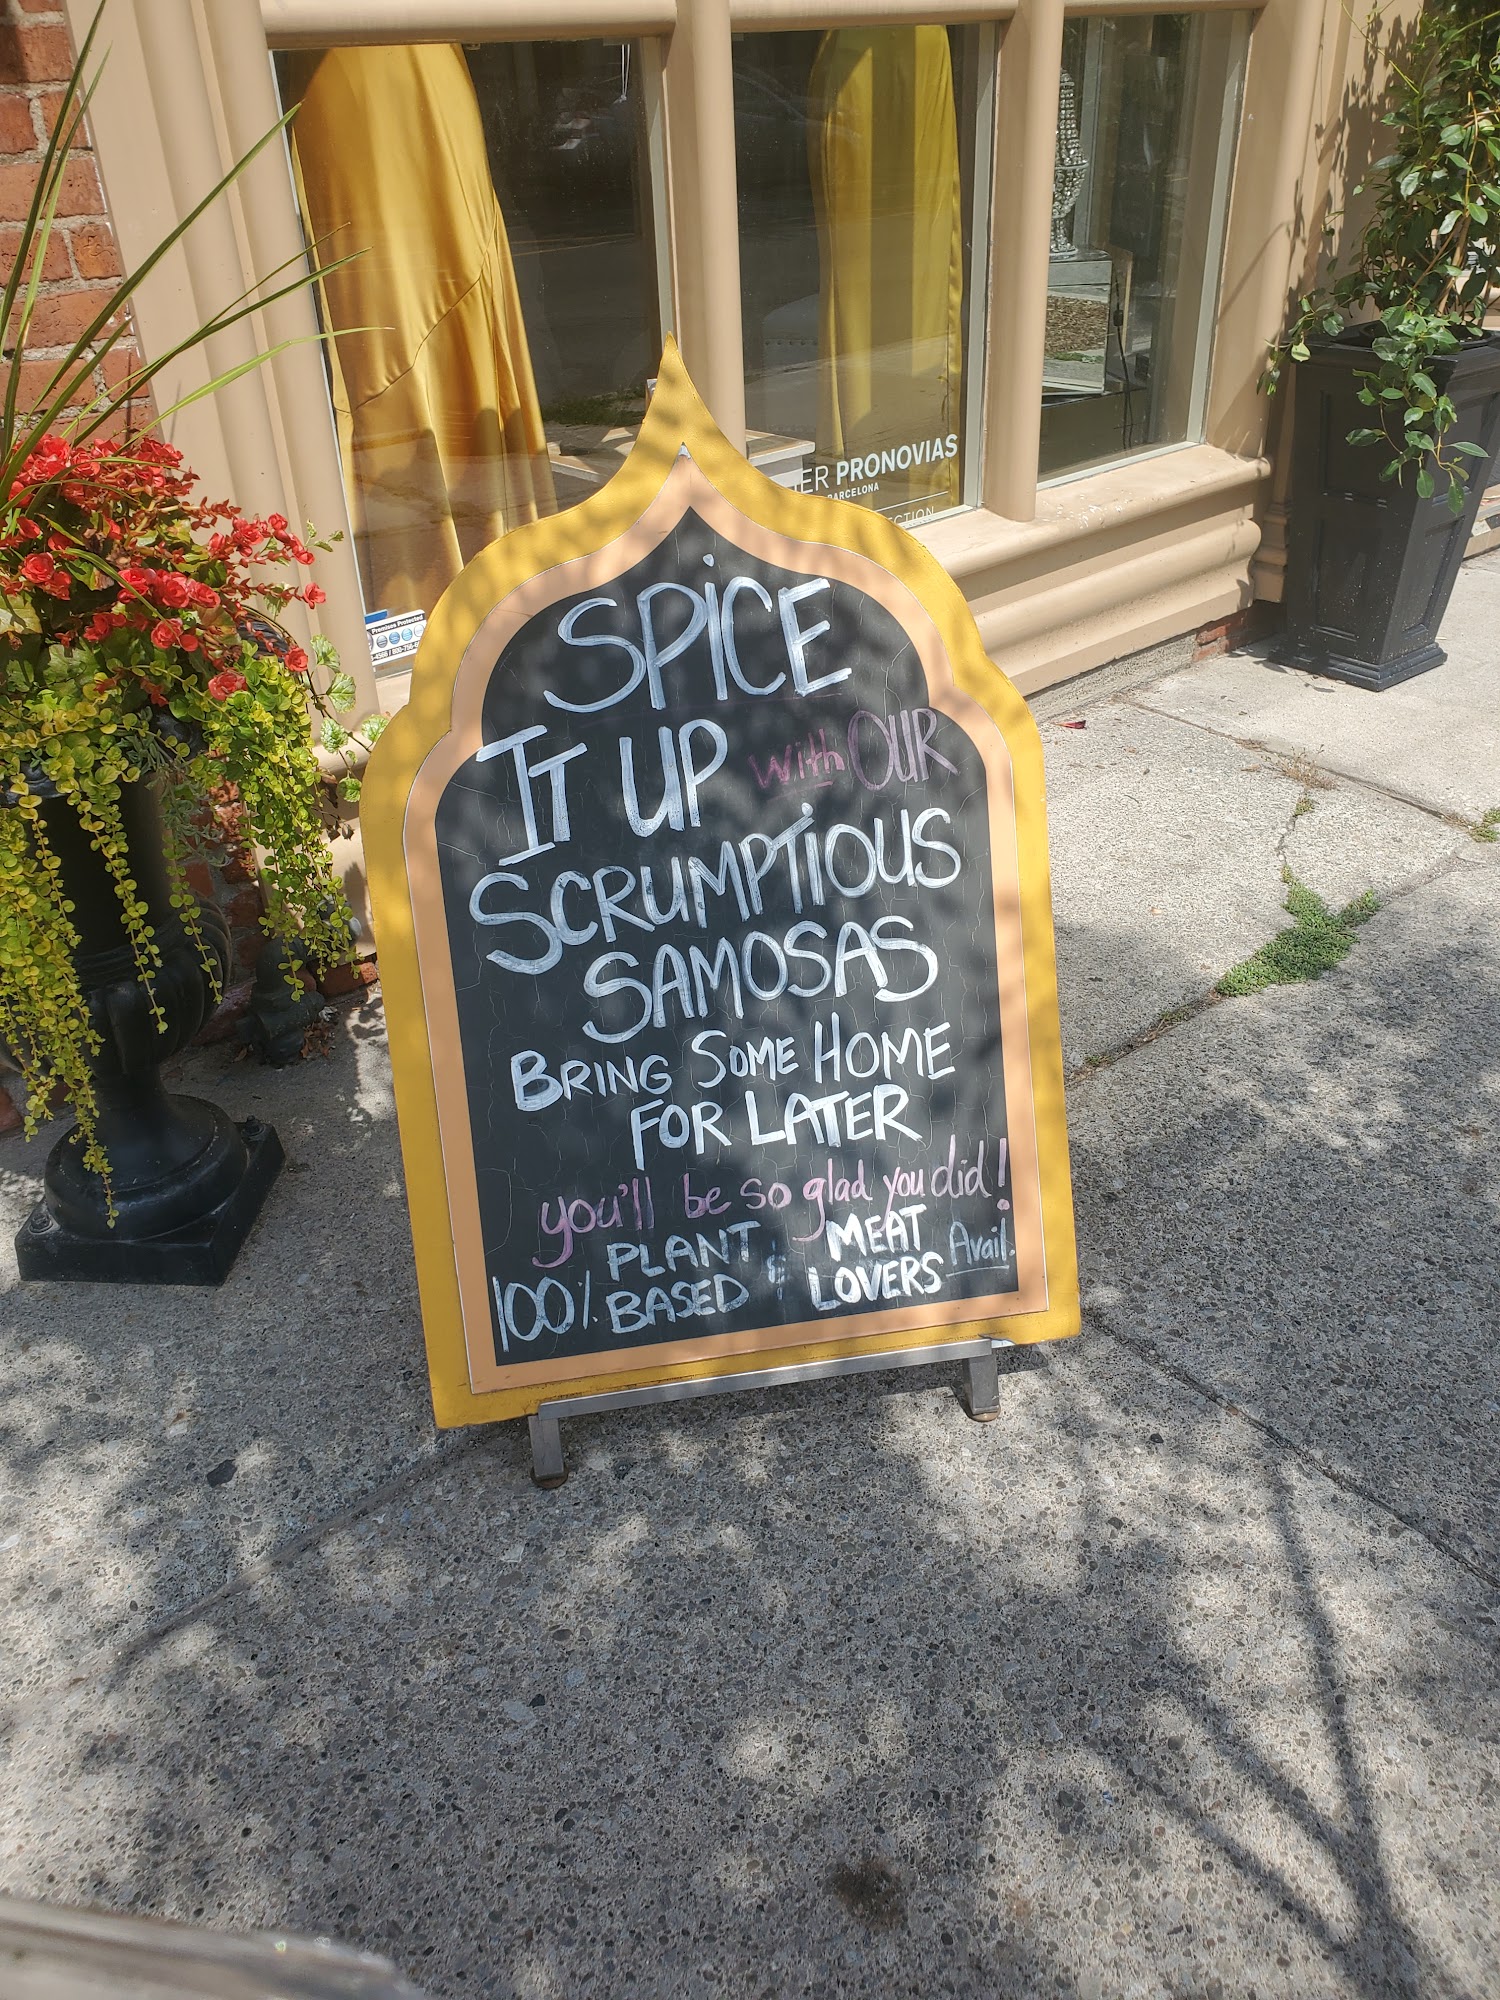 SPiCE
IT UP with OUR
SCRUMPTiOUS
SAMOSAS
BRING SOME HOME
FOR LATER
you'll be so glad you did!
100% PLANT BASED & MEAT LOVERS Avail.
PRONOVIAS
BARCELONA
Premises Protected